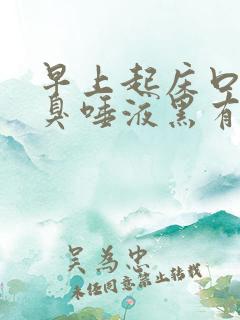 早上起床口
臭唾液黑有
吴为忠
未经同意禁止转载